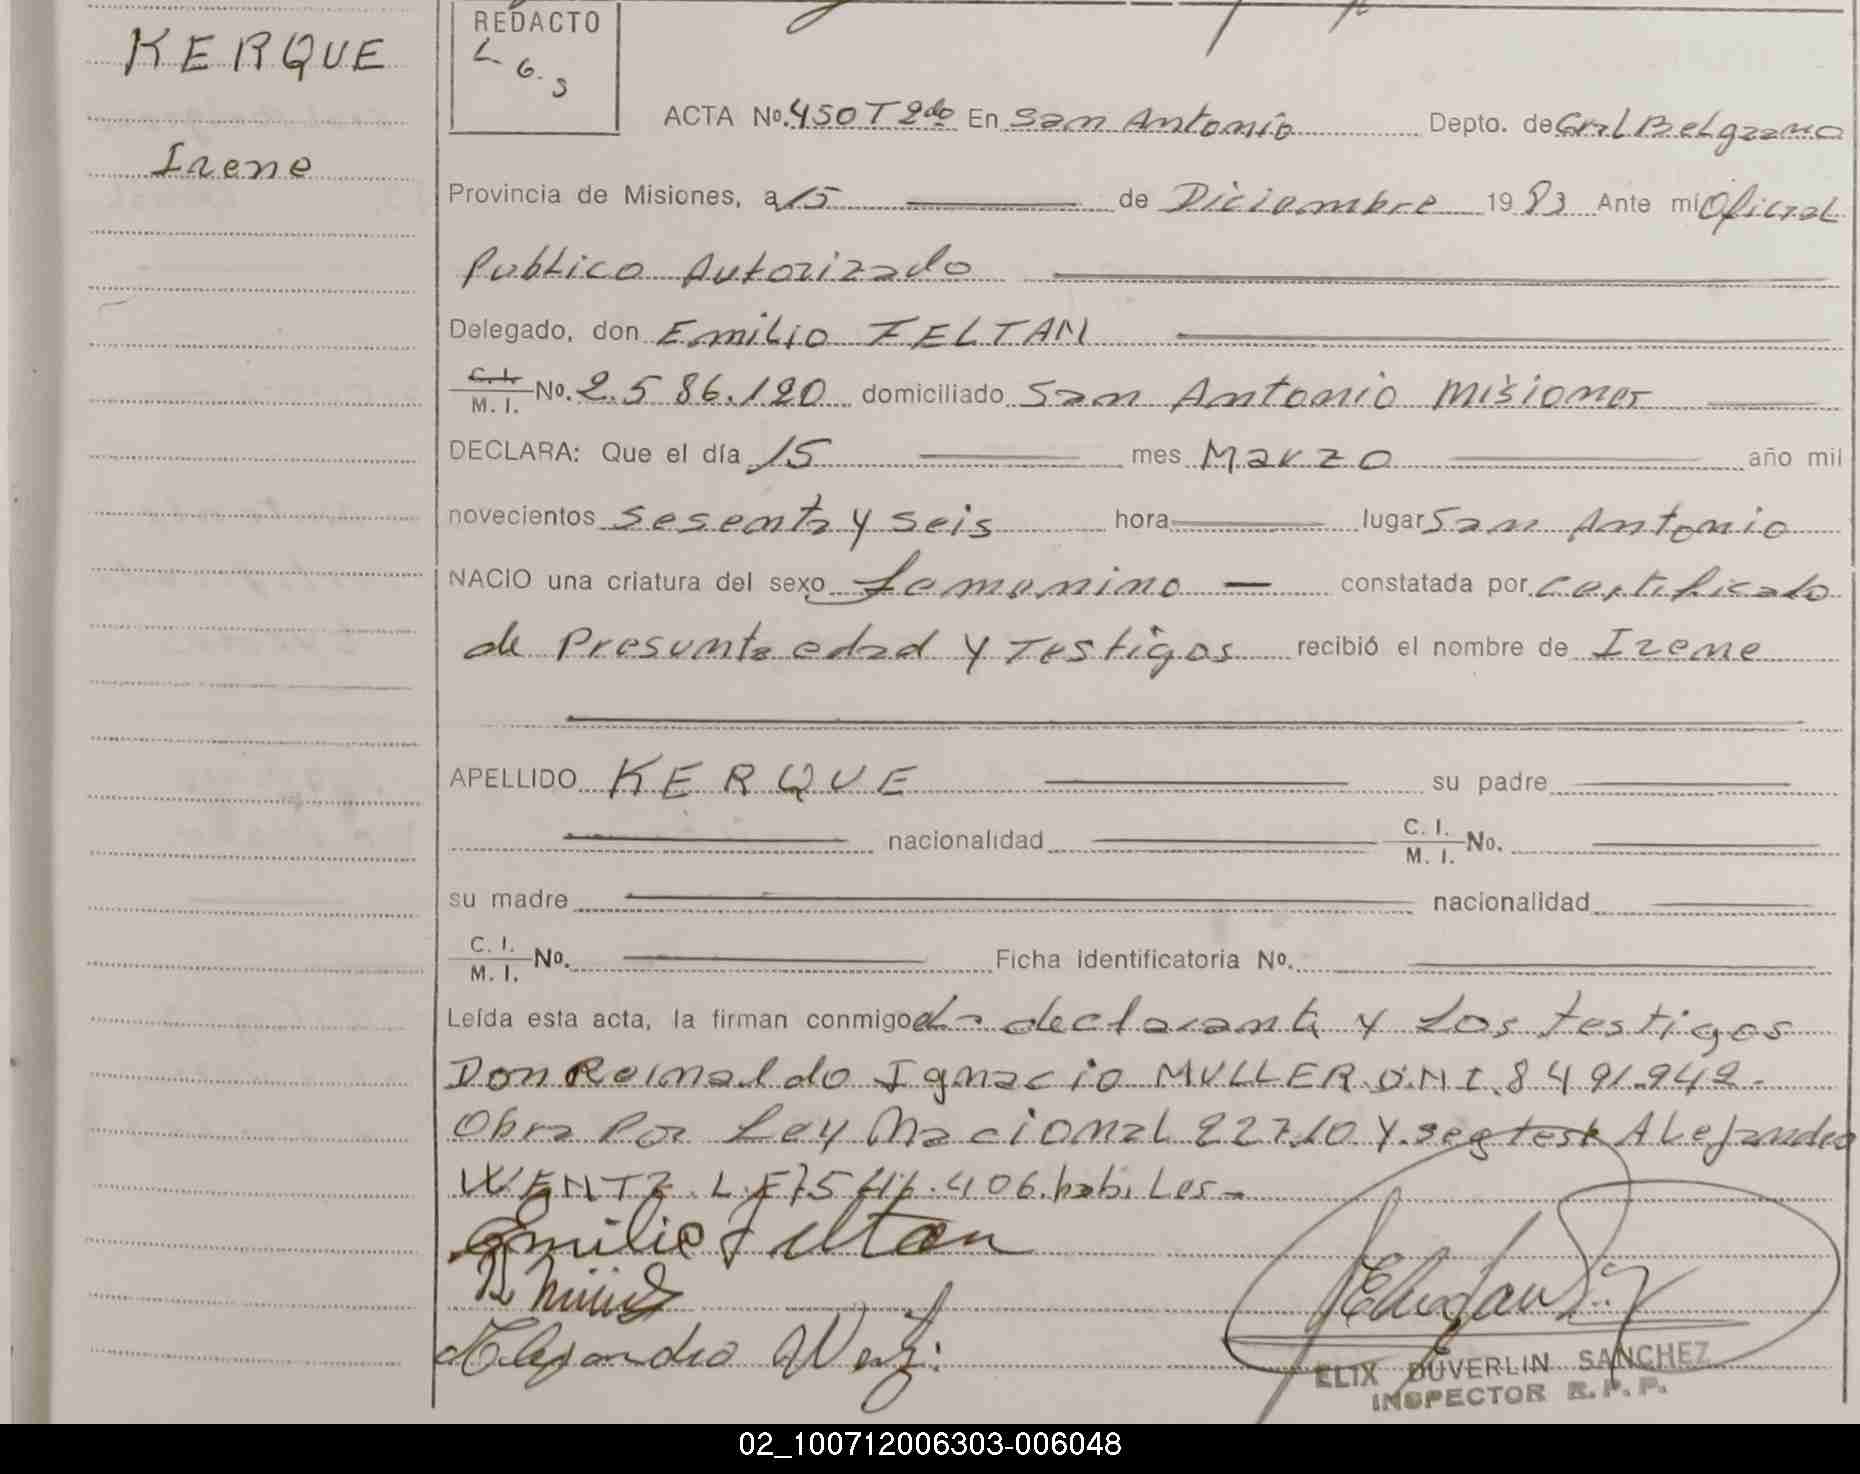 KERQUE
Irene
REDACTO
L. G. S
ACTA No. 450 T 2do En San Antonio Depto. de Gral Belgrano
Provincia de Misiones, a 15 de Diciembre 1983 Ante mi Oficial
Publico Autorizado
Delegado, don Emilio FELTAN
C. I. / M. I. No. 2.586.120 domiciliado San Antonio Misiones
DECLARA: Que el día 15 mes Marzo año mil
novecientos sesenta y seis hora lugar San Antonio
NACIO una criatura del sexo femenino — constatada por certificado
de Presunta edad y Testigos recibió el nombre de Irene
APELLIDO KERQUE su padre
nacionalidad C. I. / M. I. No.
su madre nacionalidad
C. I. / M. I. No. Ficha identificatoria No.
Leída esta acta, la firman conmigo el declarante y Los testigos
Don Reinaldo Ignacio MULLER D.N.I. 8491.942-
Obra Por Ley Nacional 22710 y seg test Alejandro
WENTZ L.E 7.5 .406. habiles-
Emilio Feltan
Alejandro Wentz
ELIX DUVERLIN SANCHEZ
INSPECTOR R. P. P.
02_100712006303-006048